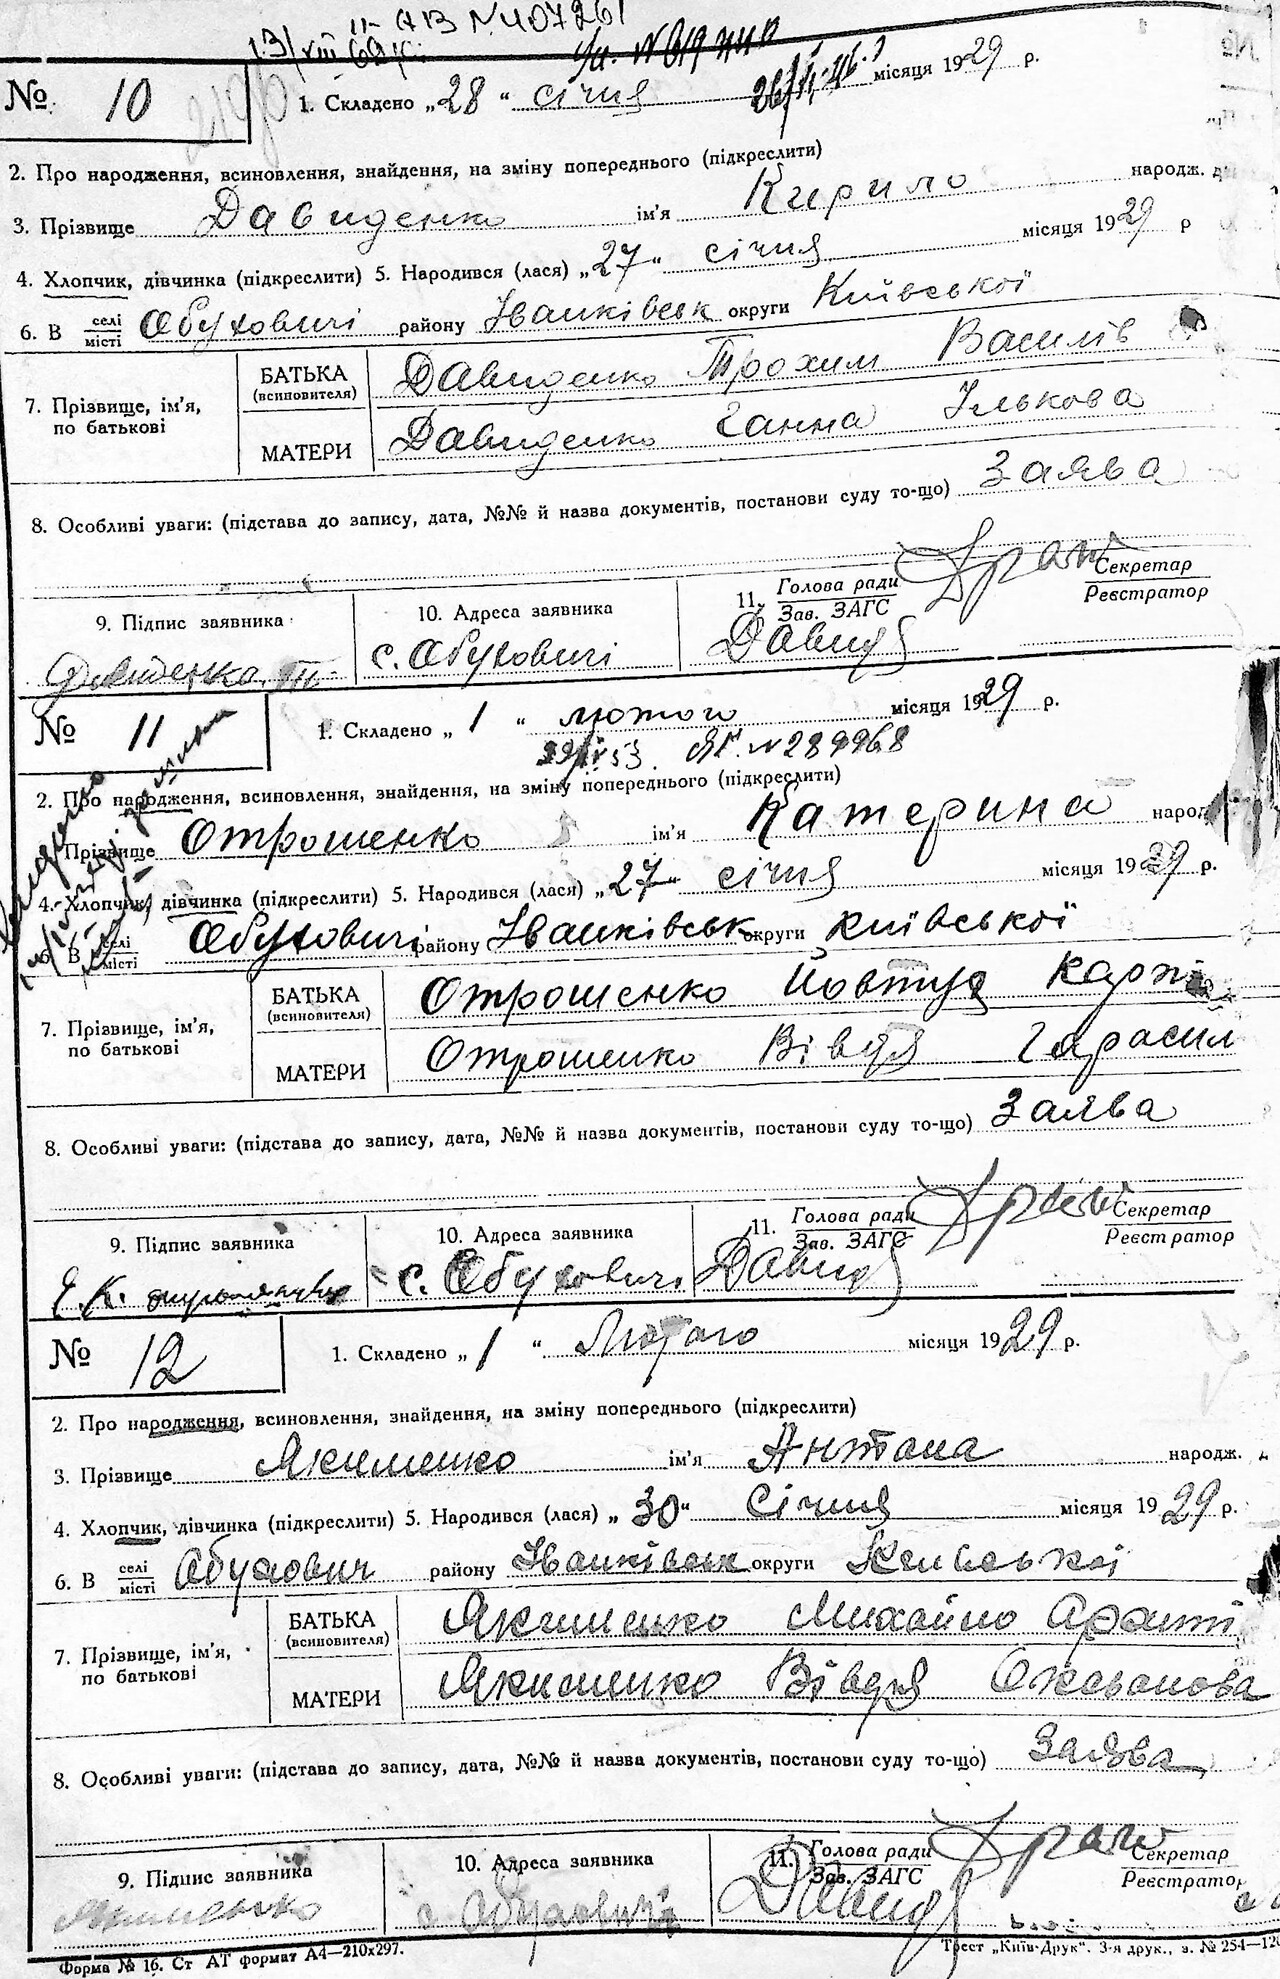 13/VIII 69 р. II-АВ № 407261
№ 10
1. Складено „28“ січня місяця 1929 р.
2. Про народження, всиновлення, знайдення, на зміну попереднього (підкреслити)
3. Прізвище Давиденко ім'я Кирило народж.
4. Хлопчик, дівчинка (підкреслити) 5. Народився (лася) „27“ січня місяця 1929 р
6. В селі/місті Обуховичі району Іванківськ округи Київської
7. Прізвище, ім'я, по батькові
БАТЬКА (всиновителя) Давиденко Трохим Василів
МАТЕРИ Давиденко Ганна Ількова
8. Особливі уваги: (підстава до запису, дата, №№ й назва документів, постанови суду то-що) Заява
9. Підпис заявника
10. Адреса заявника
11. Голова ради/Зав. ЗАГС
Секретар/Реєстратор
Давиденко
с. Обуховичі
Давид
№ 11
1. Складено „1“ лютого місяця 1929 р.
53 ЯГ. № 289968
2. Про народження, всиновлення, знайдення, на зміну попереднього (підкреслити)
Прізвище Отрошенко ім'я Катерина народ
4. Хлопчик, дівчинка (підкреслити) 5. Народився (лася) „27“ січня місяця 1929 р.
6. В селі/місті Обуховичі району Іванківськ округи київської
7. Прізвище, ім'я, по батькові
БАТЬКА (всиновителя) Отрошенко Йовтух Карпі
МАТЕРИ Отрошенко Вівдя Гарасим
8. Особливі уваги: (підстава до запису, дата, №№ й назва документів, постанови суду то-що) Заява
9. Підпис заявника
10. Адреса заявника
11. Голова ради/Зав. ЗАГС
Секретар/Реєстратор
с. Обуховичі
Давид
№ 12
1. Складено „1“ Лютого місяця 1929 р.
2. Про народження, всиновлення, знайдення, на зміну попереднього (підкреслити)
3. Прізвище Якименко ім'я Антона народж.
4. Хлопчик, дівчинка (підкреслити) 5. Народився (лася) „30“ Січня місяця 1929 р.
6. В селі/місті Обухович району Іванківськ округи Київської
7. Прізвище, ім'я, по батькові
БАТЬКА (всиновителя) Якименко Михайло
МАТЕРИ Якименко Вівдя
8. Особливі уваги: (підстава до запису, дата, №№ й назва документів, постанови суду то-що) Заява
9. Підпис заявника
10. Адреса заявника
11. Голова ради/Зав. ЗАГС
Секретар/Реєстратор
Якименко
с. Обуховичі
Давид
Форма № 16. Ст АТ формат А4—210x297.
Трест „Київ-Друк“. 3-я друк., з. № 254—